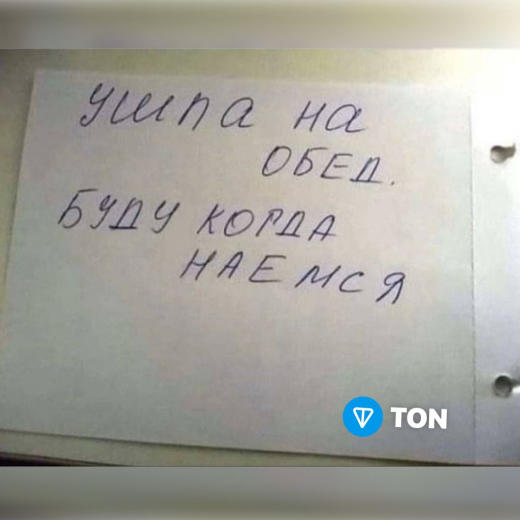 УШЛА НА
ОБЕД.
БУДУ КОГДА
НАЕМСЯ
TON